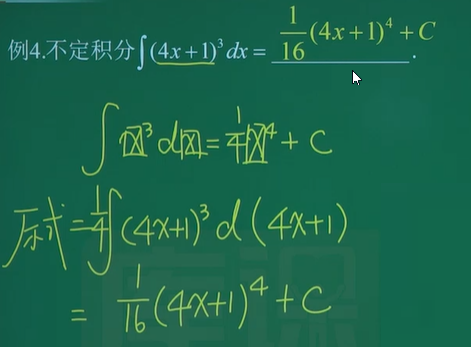 例4.不定积分∫(4x+1)³dx = 1/16(4x+1)⁴+C.
∫x³dx=1/4x⁴+C
原式=1/4∫(4x+1)³d(4x+1)
=1/16(4x+1)⁴+C